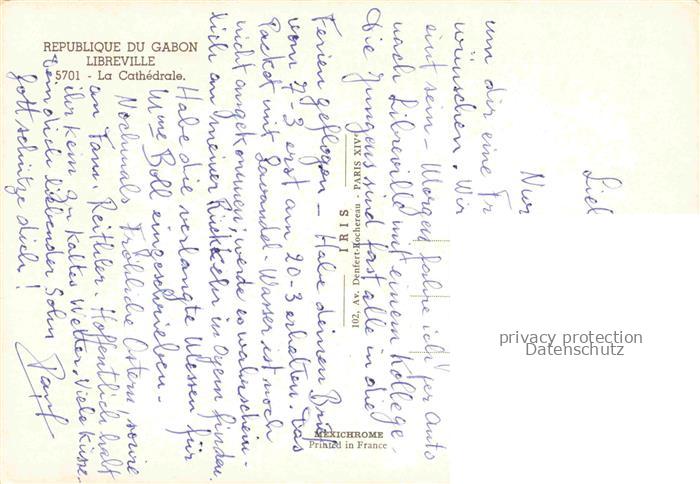 REPUBLIQUE DU GABON
LIBREVILLE
5701 - La Cathédrale.
IRIS
102, Av. Denfert-Rochereau - PARIS XIVe
MEXICHROME
Printed in France
privacy protection
Datenschutz
Lieb
Nur
um dir eine Fr
wünschen. Wir
eint sein - Morgen fahre ich per Auto
nach Libreville mit einem Kollege -
Die Jungens sind fast alle in die
Ferien geflogen - Habe deinen Brief
vom 7-3 erst am 20-3 erhalten. Das
Packet mit Lavandel Wasser ist noch
nicht angekommen, werde es warschein-
lich an meiner Rückkehr in Oyem finden.
Habe die verlangte Messen für
Mme Boll eingeschrieben -
Nochmals Fröhliche Ostern, sowie
an Fam. Reithler. Hoffentlich habt
ihr kein zu kaltes Wetter. Viele Küsse
dein dich liebender Sohn
Gott schütze dich!